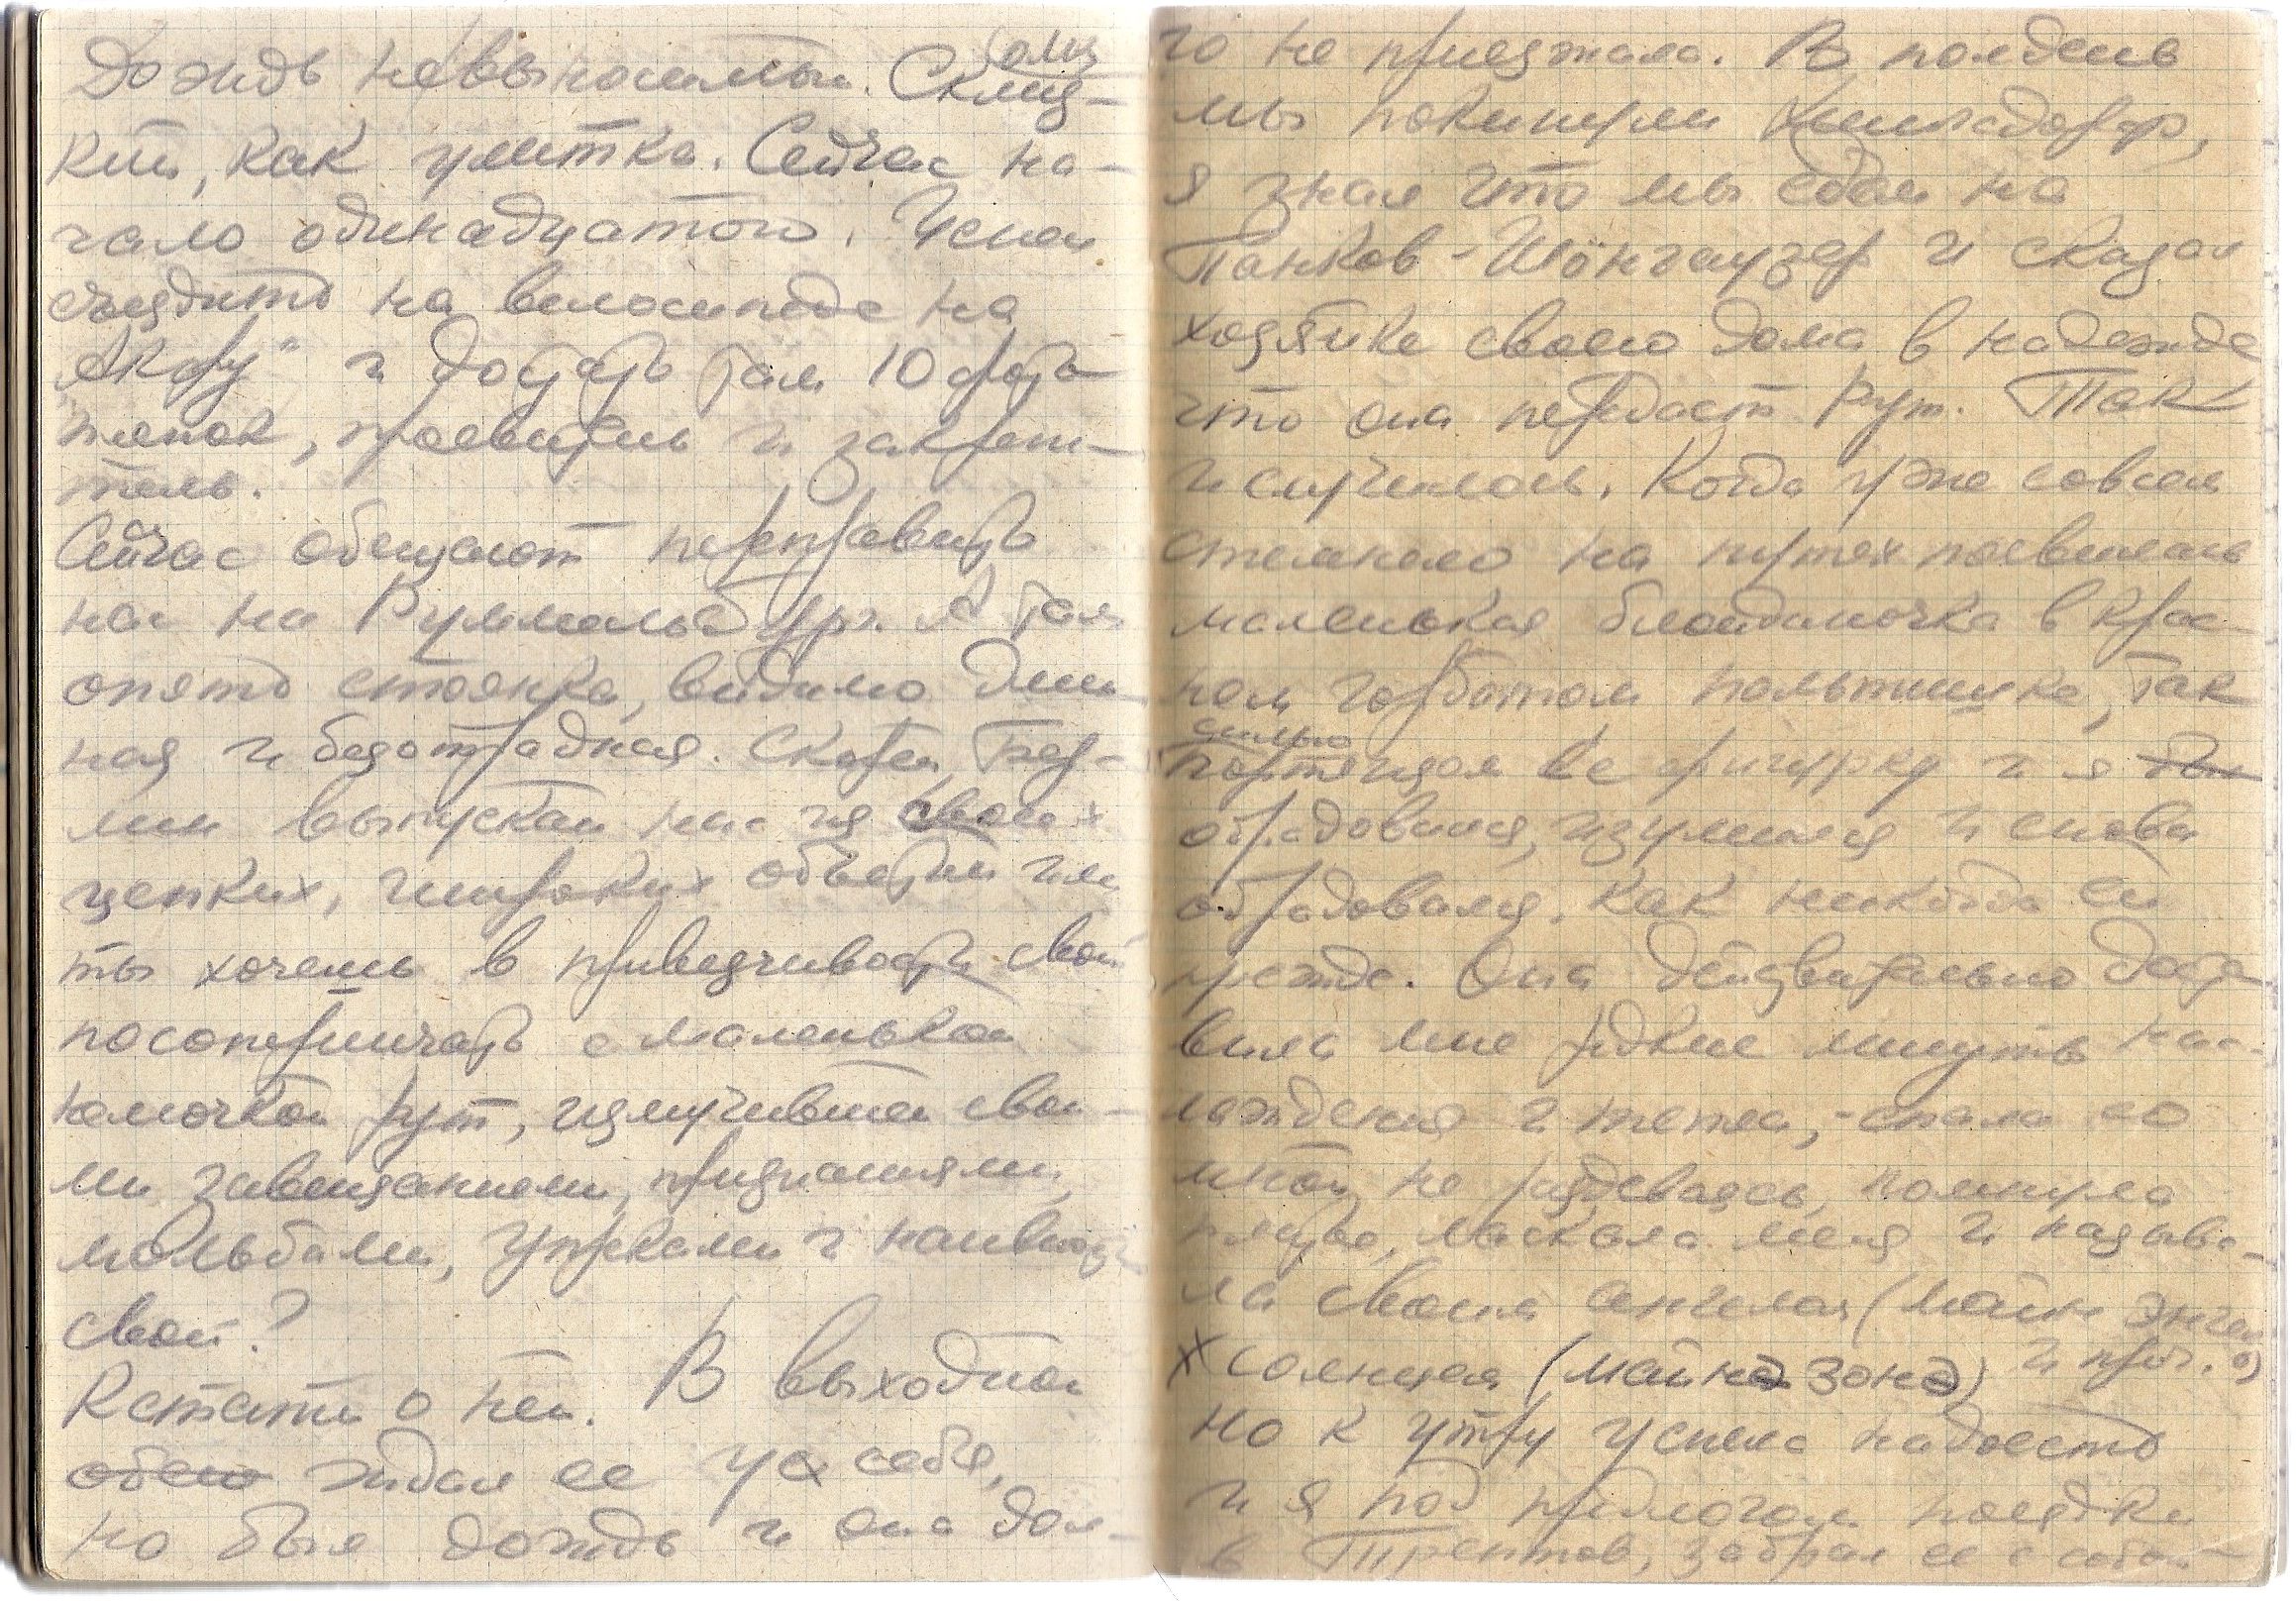 Дождь невыносимый. Склиз-
кий, как улитка. Сейчас на-
чало одинадцатого. Успел
съездить на велосипеде на
„Акфу“ и достать там 10 фото-
пленок, проявитель и закрепи-
тель.
Сейчас обещают переправить
нас на Руммельсбург. А там
опять стоянка, видимо длин-
ная и безотрадная. Скорей, Бер-
лин выпускай нас из своих
цепких, широких объятий или
ты хочешь в привязчивости своей
посоперничать с маленькой
немочкой Рут, измучившей свои-
ми завещанием, признаниями,
мольбами, упреками и наивностью
своей?
Кстати о ней. В выходной
ждал ее у себя,
но был дождь и она дол-
го не приезжала. В полдень
мы покинули
я знал что мы едем на
Панков-Шёнгаузер и сказал
хозяйке своего дома в надежде
что она передаст Рут. Так
и случилось. Когда уже совсем
стемнело на путях появилась
маленькая блондиночка в крас-
ном горбатом пальтишке, так
сильно
портящем ее фигурку и я
обрадовался, изумился и снова
обрадовался. Как никогда ей
прежде. Она действительно доста-
вила мне редкие минуты нас-
лаждения и тепла, - спала со
мной, не раздеваясь,
ласкала меня и называ-
ла своим ангелом (майн энгел)
х солнцем (майнэ зонэ) и проч.
но к утру успела надоесть
и я под предлогом поездки
в Трептов, забрал ее с собой